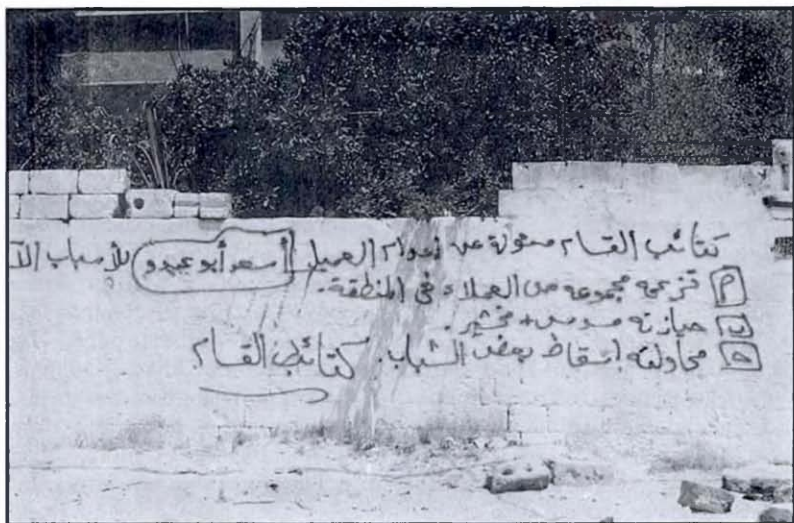 كتائب القسام مسئولة عن إعدام العميل أسعد أبو عبدو للأسباب الآ
أ تزعمه مجموعه من العملاء في المنطقة.
ب حيازته مسدس +
ج محاولته إسقاط بعض الشباب. كتائب القسام